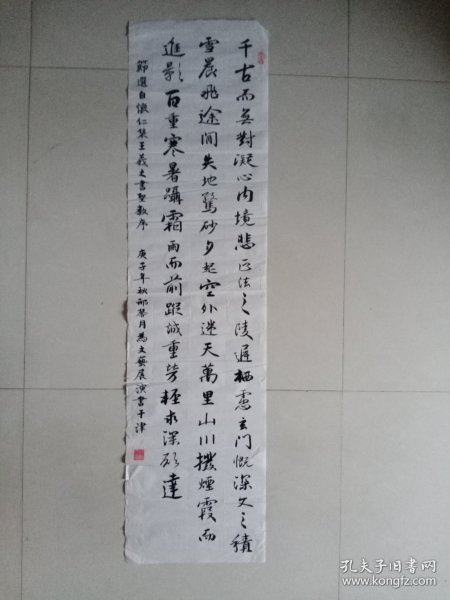 千古而無對凝心內境悲正法之陵遲栖慮玄門慨深文之積
雪晨飛途間失地驚砂夕起空外迷天萬里山川撥煙霞而
進影百重寒暑躡霜雨而前蹤誠重勞輕求深願達
節選自懷仁集王羲之書聖教序 庚子年秋邢月為文藝展演書于津
孔夫子旧书网
www.kongfz.com